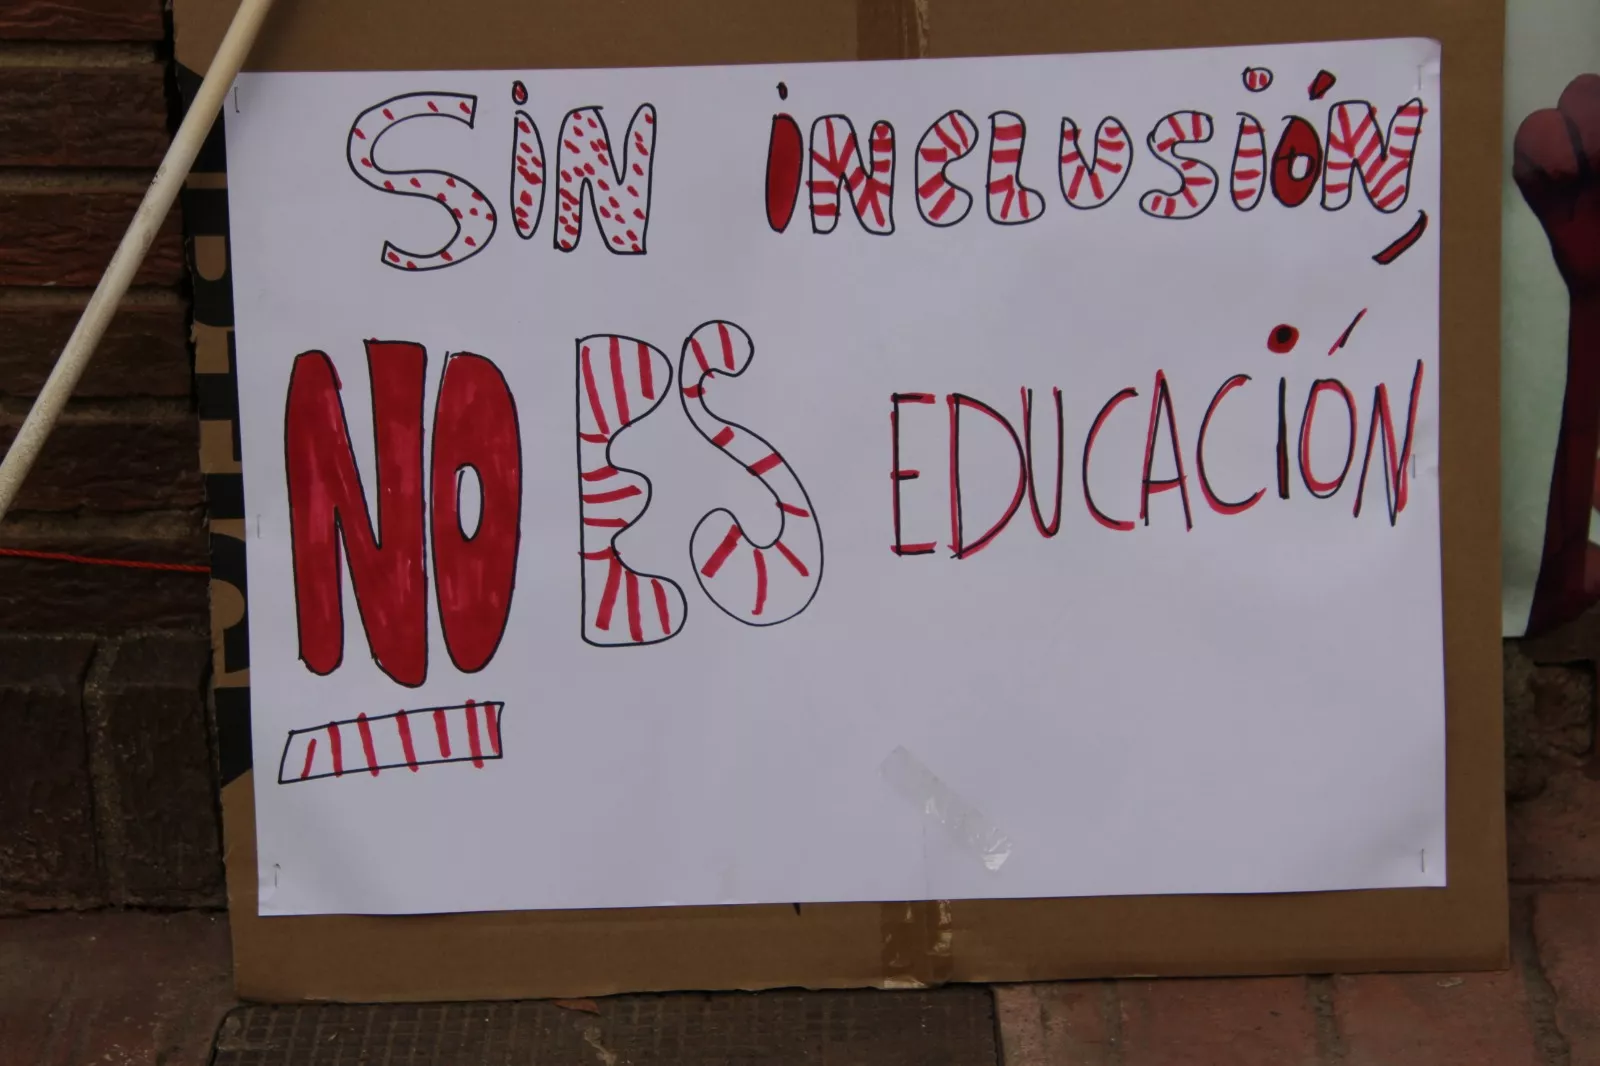 SiN iNCLUSiÓN,
NO ES EDUCACiÓN